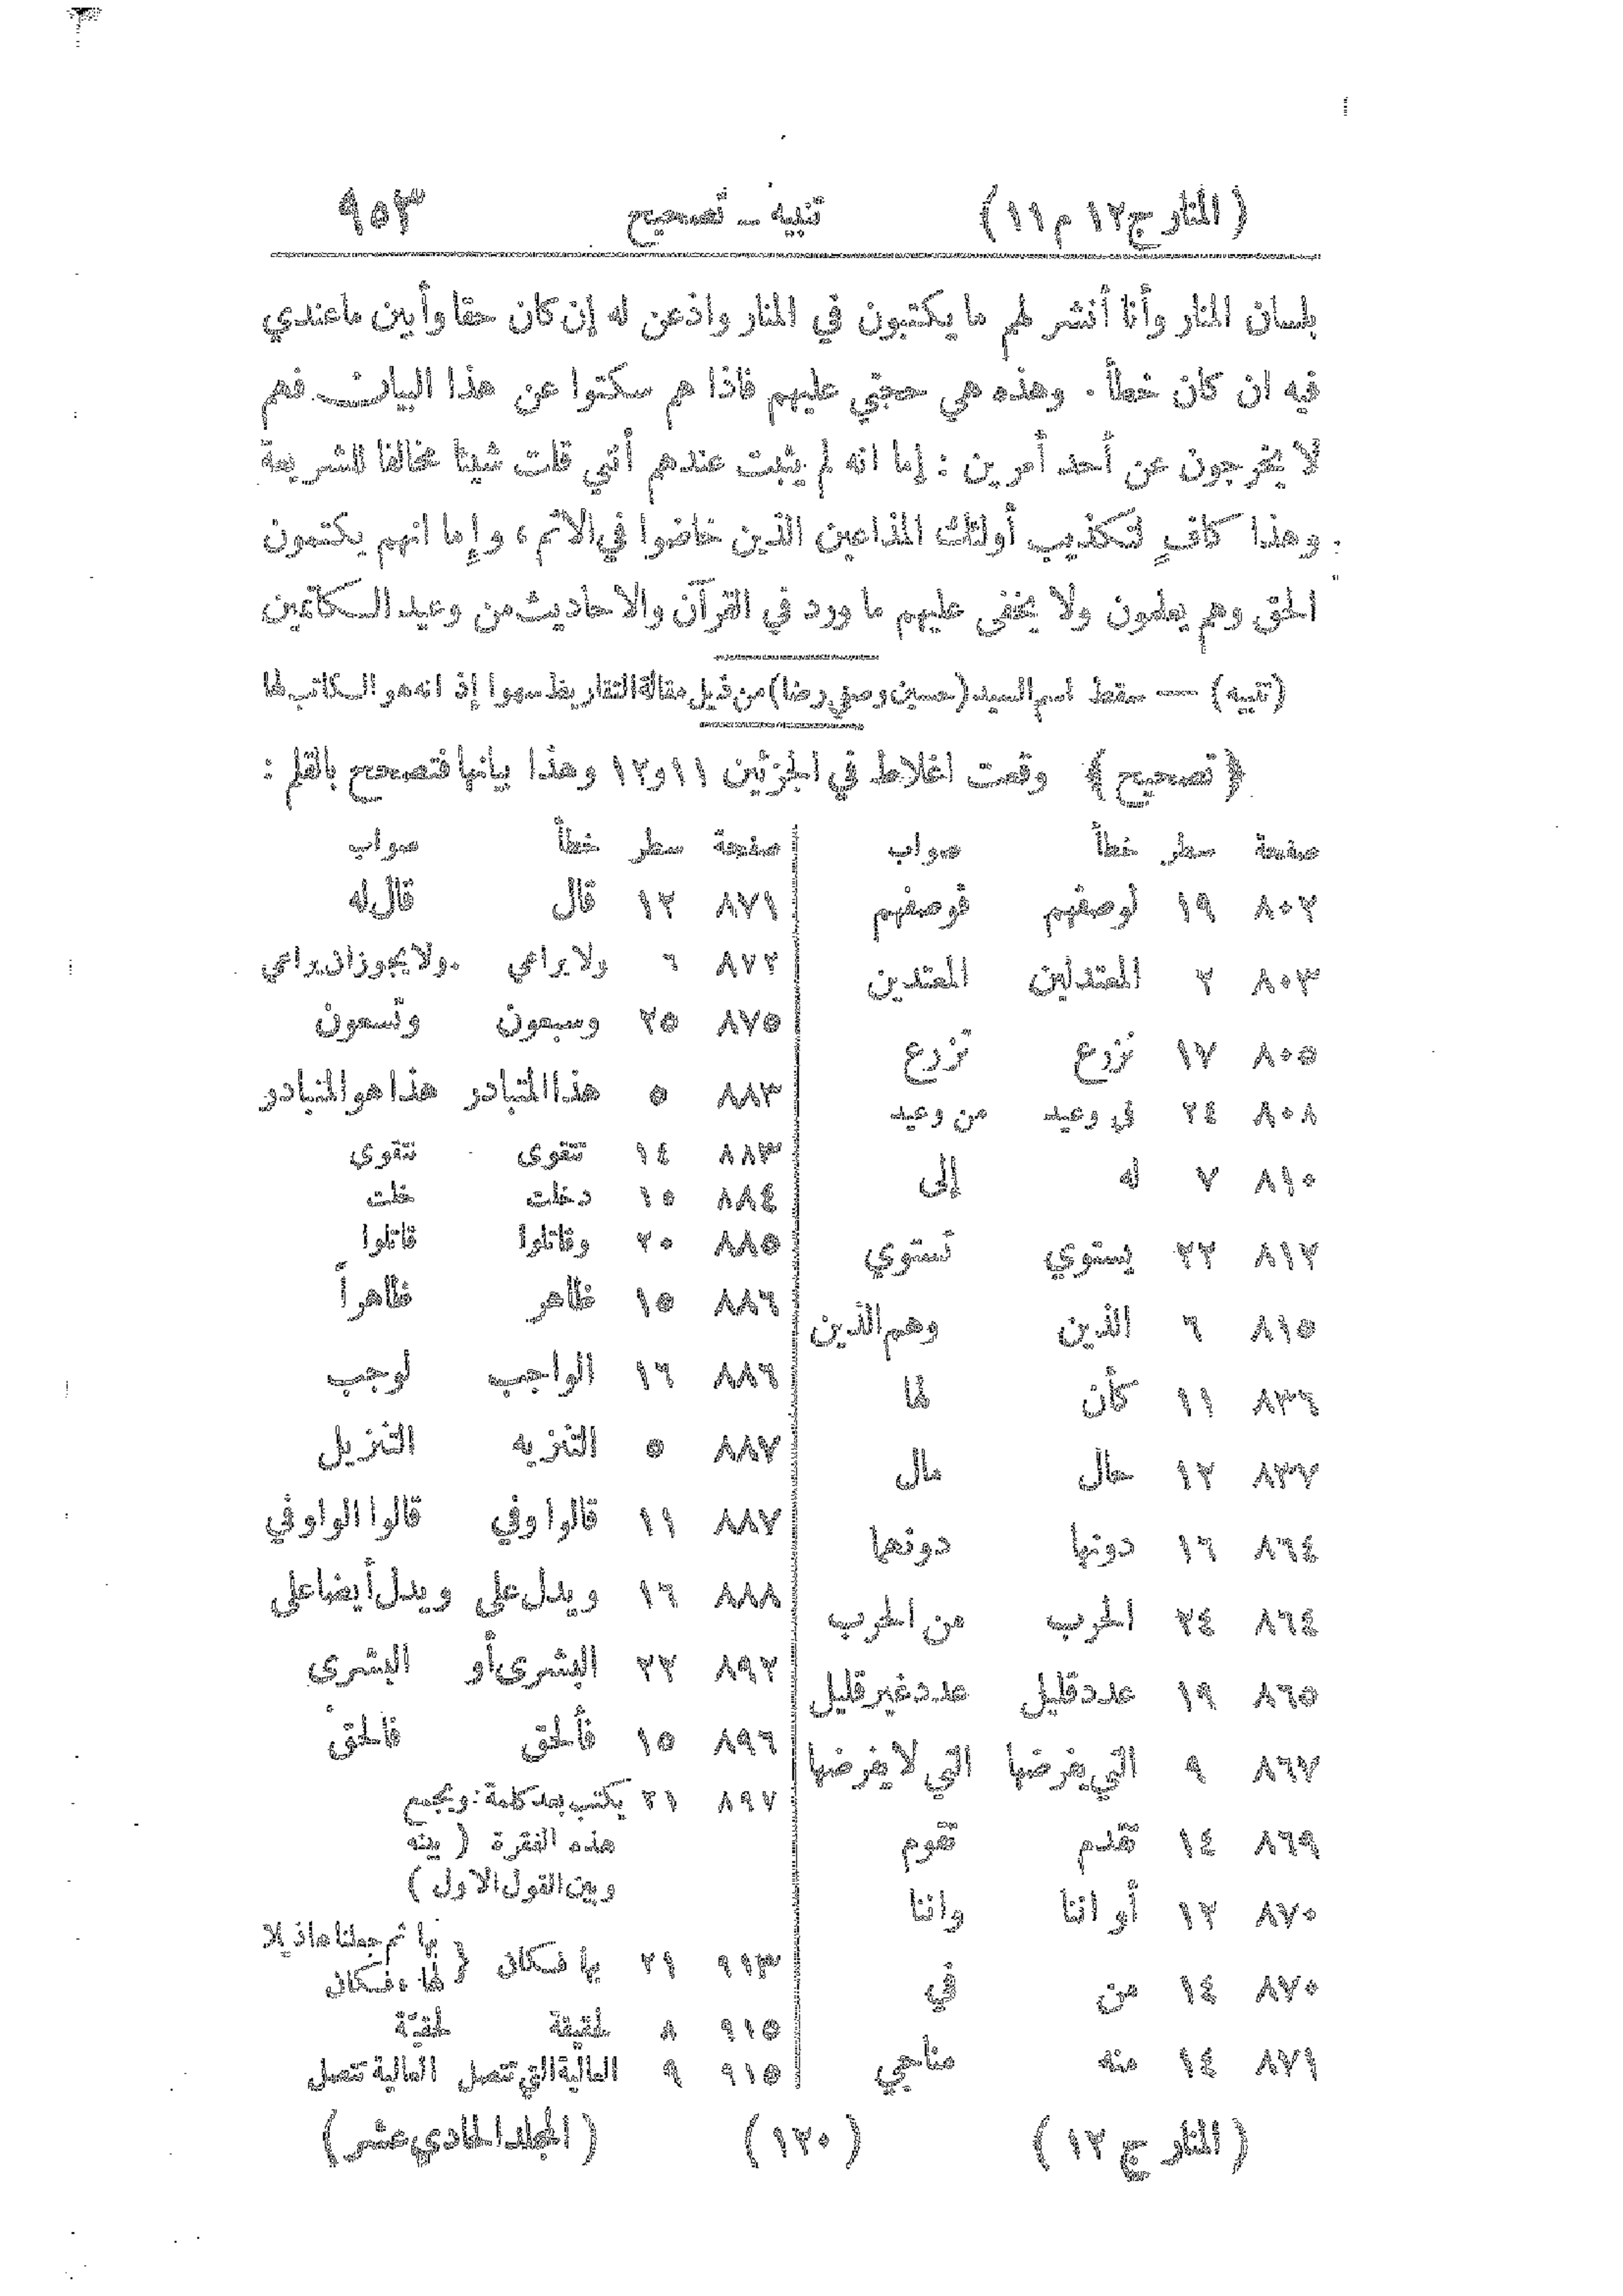 (المنار ج ١٢ م ١١) تنبيه ــ تصحيح ٩٥٣
بلسان المنار وأنا أنشر لهم ما يكتبون في المنار واذعن له إن كان حقا وأبين ما عندي
فيه ان كان خطأ . وهذه هي حجتي عليهم فاذا هم سكتوا عن هذا البيان فهم
لا يخرجون عن أحد أمرين : إما انه لم يثبت عندهم أنني قلت شيئا مخالفا للشريعة
وهذا كافٍ لتكذيب أولئك المذاعين الذين خاضوا في الاثم ، وإما انهم يكتمون
الحق وهم يعلمون ولا يخفى عليهم ما ورد في القرآن والاحاديث من وعيد الكاتمين
(تنبيه) — سقط اسم السيد (حسين وصفي رضا) من ذيل مقالة التقاريظ سهوا إذ انه هو الكاتب لها
﴿ تصحيح ﴾ وقعت اغلاط في الجزئين ١١ و١٢ وهذا بيانها فتصحح بالقلم :
صفحة سطر خطأ صواب
٨٠٢ ١٩ لوصفهم فوصفهم
٨٠٣ ٢ المعتدلين المعتدين
٨٠٥ ١٧ نزرع تزرع
٨٠٨ ٢٤ في وعيد من وعيد
٨١٠ ٧ له إلى
٨١٢ ٢٢ يستوي تستوي
٨١٥ ٦ الذين وهم الذين
٨٣٦ ١١ كأن لما
٨٣٧ ١٢ حال مال
٨٦٤ ١٦ دونها دونهما
٨٦٤ ٢٤ الحرب من الحرب
٨٦٥ ١٩ عدد قليل عدد غير قليل
٨٦٧ ٩ التي يفرضها التي لا يفرضها
٨٦٩ ١٤ تقدم تقوم
٨٧٠ ١٢ أو اننا واننا
٨٧٠ ١٤ من في
٨٧١ ١٤ منه مناحي
صفحة سطر خطأ صواب
٨٧١ ١٢ قال قال له
٨٧٢ ٦ ولا يراعي ولا يجوز ان يراعي
٨٧٥ ٢٥ وسبعون وتسعون
٨٨٣ ٥ هذا المتبادر هذا هو المتبادر
٨٨٣ ١٤ تتقوى نتقوى
٨٨٤ ١٥ دخلت خلت
٨٨٥ ٢٠ وقاتلوا قاتلوا
٨٨٦ ١٥ ظاهر ظاهراً
٨٨٦ ١٦ الواجب لوجب
٨٨٧ ٥ التنزيه التنزيل
٨٨٧ ١١ قالوا وفي قالوا الواو في
٨٨٨ ١٦ ويدل على ويدل أيضا على
٨٩٢ ٢٢ البشرى أو البشرى
٨٩٦ ١٥ فألحق فالحق
٨٩٧ ٢١ يكتب بعد كلمة : ويجمع
هذه الفقرة ( بينه
وبين القول الاول )
٩١٣ ٢١ بها فكان { بها ثم جعلنا
لها ، فكان
٩١٥ ٨ لحقيقة لحقيّة
٩١٥ ٩ المالية التي تتصل المالية تتصل
( المنار ج ١٢ ) ( ١٢٠ ) ( المجلد الحادي عشر )